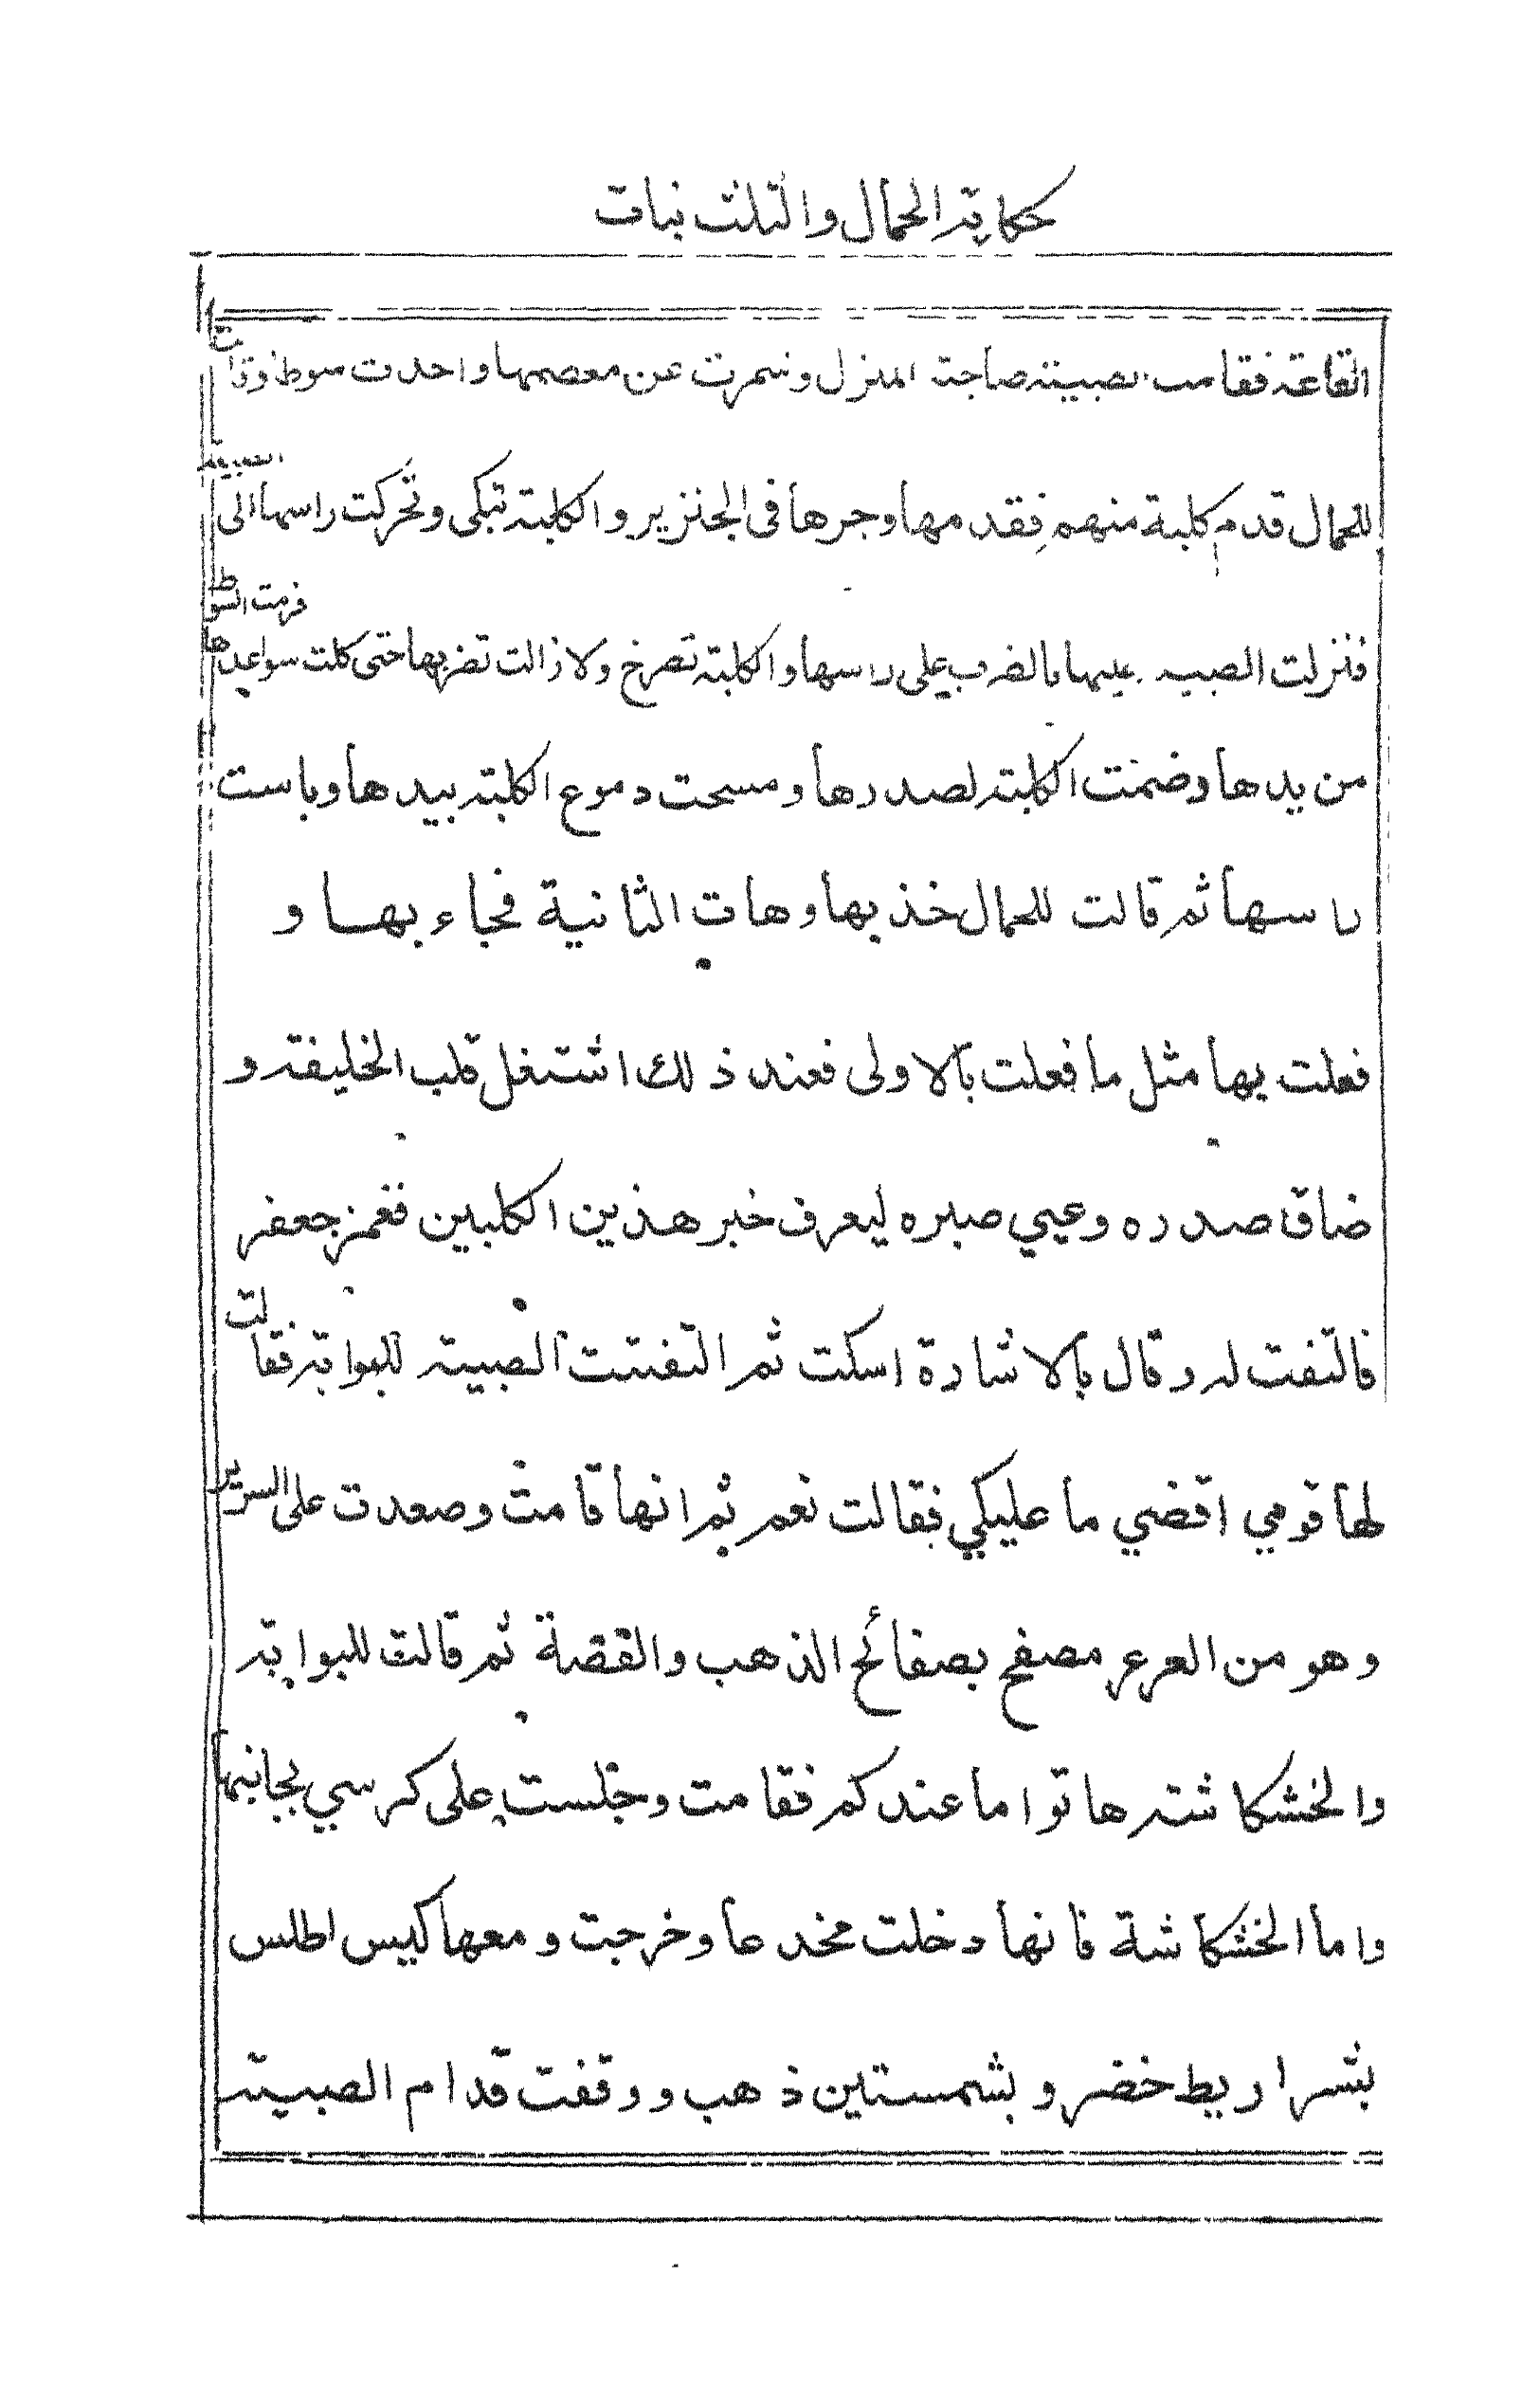 حكاية الحمال والتلت بنات
القاعة فقامت الصبية صاحبة المنزل وشمرت عن معصمها واخدت سوط وقالت
للحمال قدم كلبة منهم فقدمها وجرها في الجنزير والكلبة تبكى وتحركت راسها الى الصبية
فنزلت الصبية عليها بالضرب على راسها والكلبة تصرخ ولا زالت تضربها حتى كلت سواعدها فرمت السوط
من يدها وضمت الكلبة لصدرها ومسحت دموع الكلبة بيدها وباست
راسها ثم قالت للحمال خذ بها وهات الثانية فجاء بها و
فعلت بها مثل ما فعلت بالاولى فعند ذلك اشتغل قلب الخليفة و
ضاق صدره وعيي صبره ليعرف خبر هذين الكلبين فغمز جعفر
فالتفت له وقال بالاشارة اسكت ثم التفتت الصبية للبوابة فقالت
لها قومي اقضي ما عليكي فقالت نعم ثم انها قامت وصعدت على السرير
وهو من العرعر مصفح بصفائح الذهب والفضة ثم قالت للبوابة
والخشكاشة هاتوا ما عندكم فقامت وجلست على كرسي بجانبها
واما الخشكاشة فانها دخلت مخدعا وخرجت ومعها كيس اطلس
بشراريط خضر وبشمستين ذهب ووقفت قدام الصبية